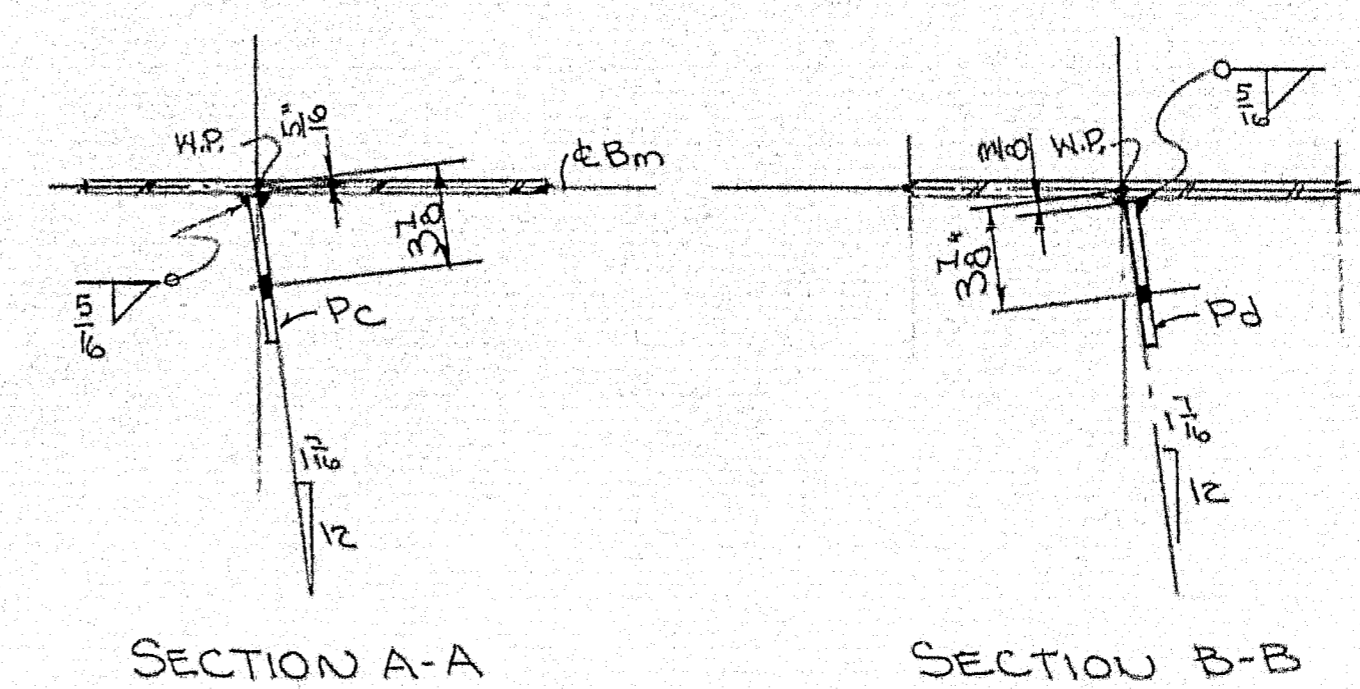 W.P.
5/16"
₵ Bm
3 1/8
5/16
Pc
1 7/16
12
SECTION A-A
5/16
3/8
W.P.
3 1/8"
Pd
1 7/16
12
SECTION B-B